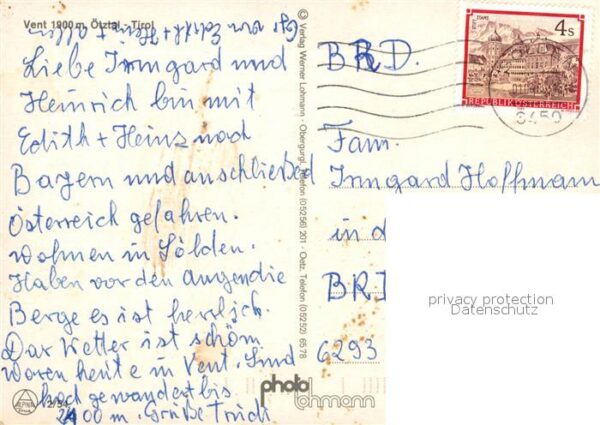 Vent 1900 m, Ötztal, Tirol
Gr. von Edith + Heinz + allen
Liebe Irmgard und
Heinrich bin mit
Edith + Heinz nach
Bayern und anschließend
Österreich gefahren.
wohnen in Sölden.
Haben vor den augen die
Berge es ist herrlich.
Das Wetter ist schön
waren heute in Vent. Sind
hoch gewandert bis
2400 m. Grüße Trudi
ALPINA
2/94
© Verlag Werner Lohmann · Obergurgl, Telefon (05256) 201 · Oetz, Telefon (05252) 6578
photo
lohmann
BRD.
Fam.
Irmgard Hoffmann
in d
BRD
6293
STIFT
STAMS
4 S
REPUBLIK ÖSTERREICH
6450
privacy protection
Datenschutz